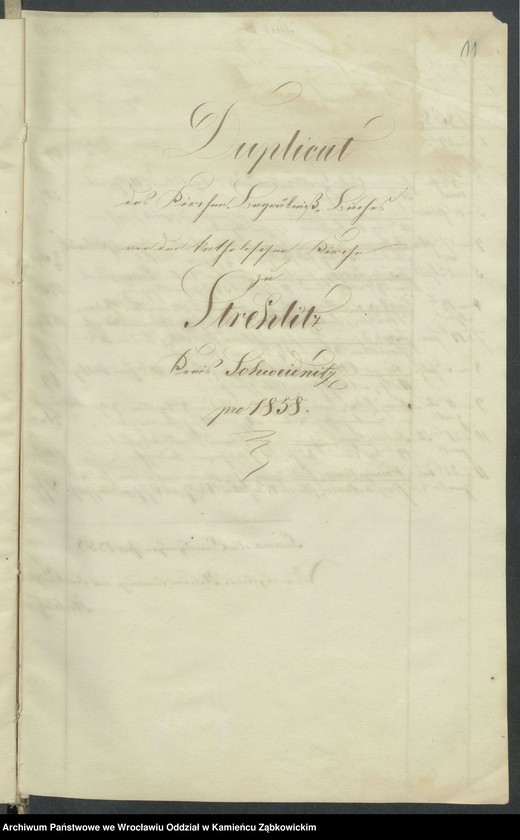 11
Duplicat
des Kirchen-Begräbniß-Buches
von der katholischen Kirche
zu
Strehlitz
Kreis Schweidnitz
pro 1858.
Archiwum Państwowe we Wrocławiu Oddział w Kamieńcu Ząbkowickim